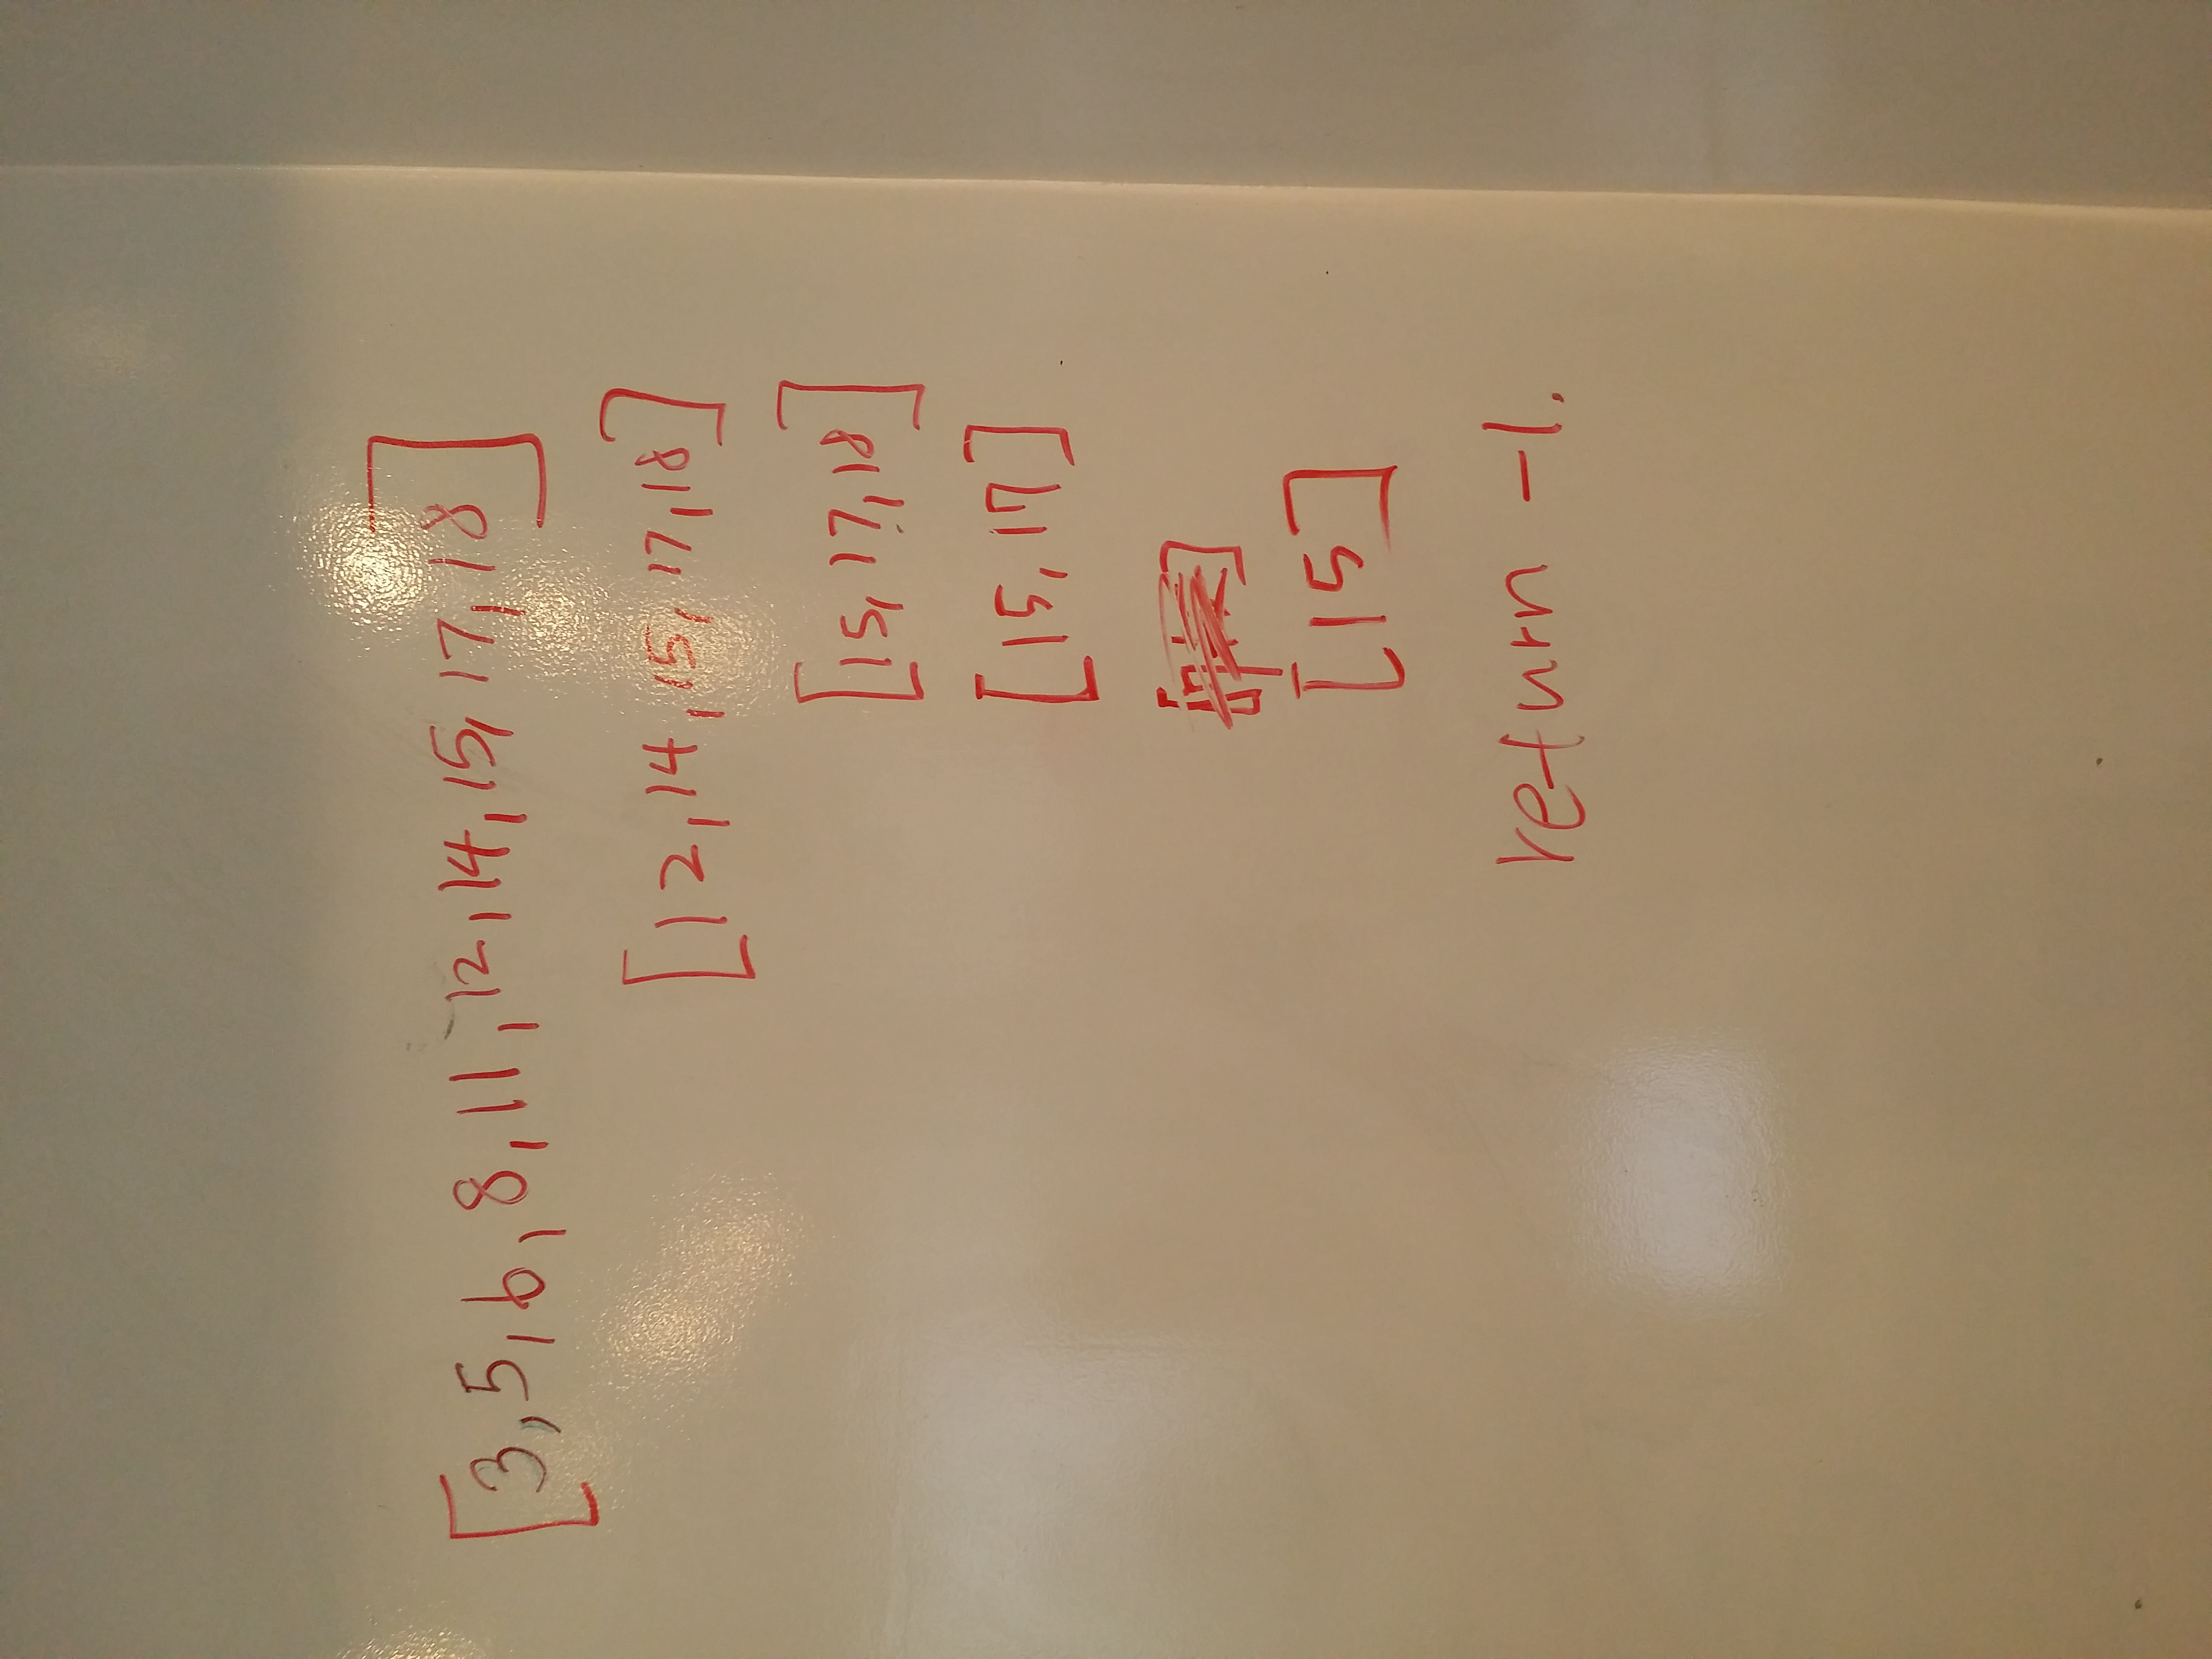 [3,5,6,8,11,12,14,15,17,18]
[12,14,15,17,18]
[15,17,18]
[15,17]
[15]
return -1.